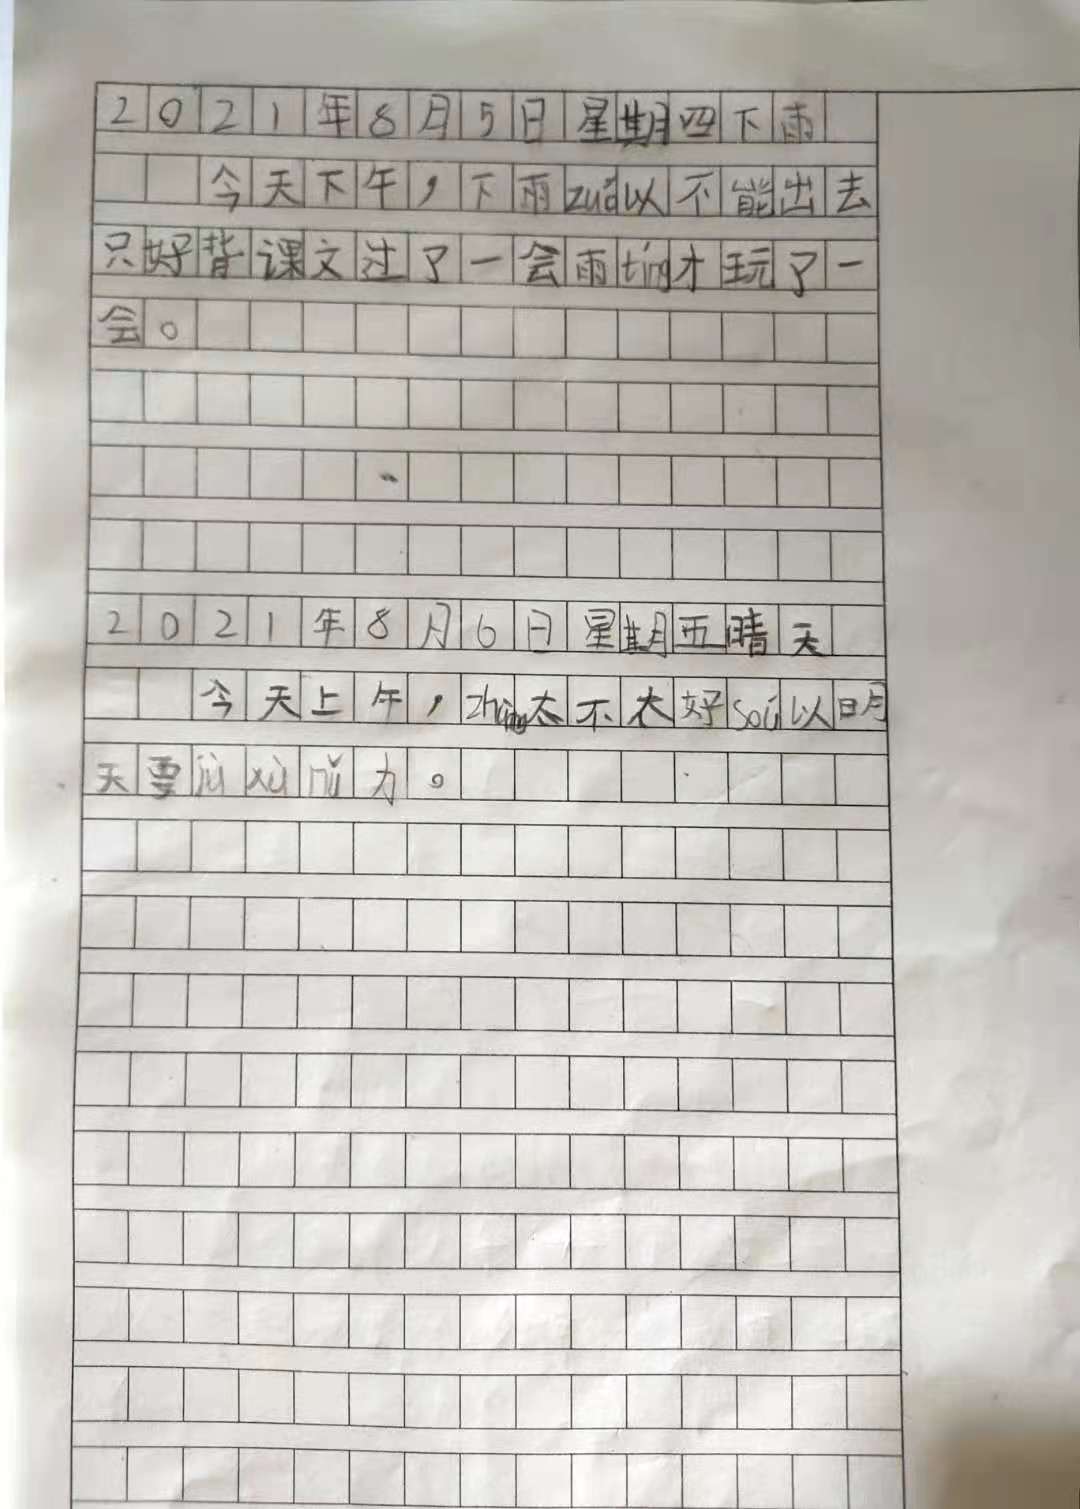 2021年8月5日星期四下雨
今天下午，下雨zuǒ以不能出去
只好背课文过了一会雨tíng才玩了一
会。
2021年8月6日星期五晴天
今天上午，zhuàng太不太好soǔ以明
天要jù xù nǔ力。